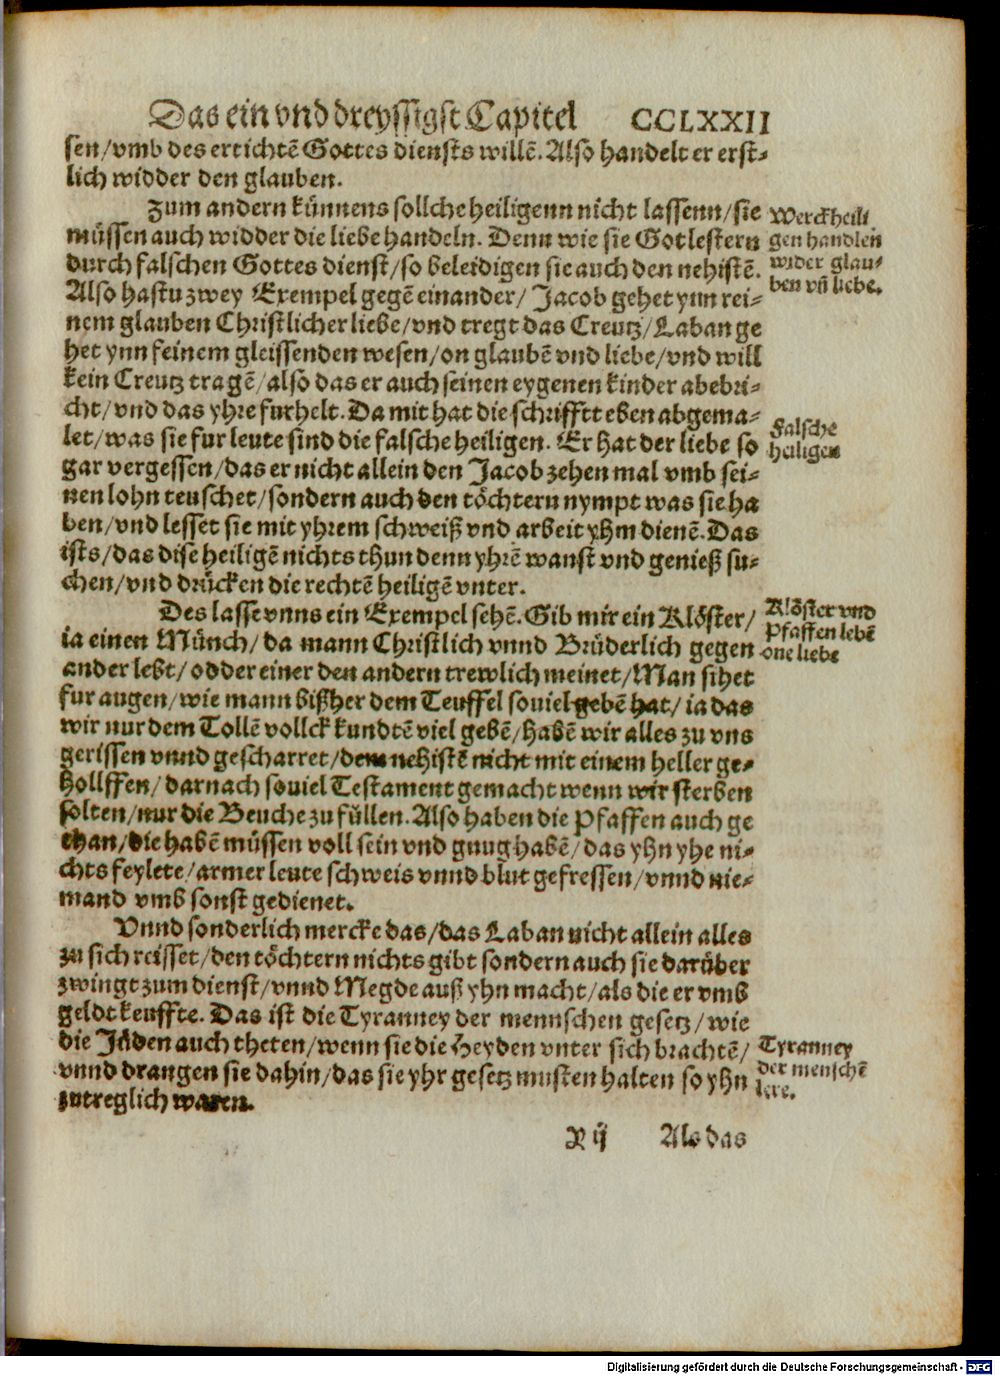 Das ein vnd dreyssigst Capitel CCLXXII
sen/vmb des ertichtẽ Gottes diensts willẽ. Also handelt er erst-
lich widder den glauben.
Zum andern künnens sollche heiligenn nicht lassenn/sie
müssen auch widder die liebe handeln. Denn wie sie Gotlestern
durch falschen Gottes dienst/so beleidigen sie auch den nehistẽ.
Also hastu zwey Exempel gegẽ einander/ Jacob gehet ynn rei-
nem glauben Christlicher liebe/vnd tregt das Creutz/Laban ge
het ynn feinem gleissenden wesen/on glaubẽ vnd liebe/vnd will
kein Creutz tragẽ/also das er auch seinen eygenen kinder abebri-
cht/vnd das yhre furhelt. Da mit hat die schrifftt eben abgema-
let/was sie fur leute sind die falsche heiligen. Er hat der liebe so
gar vergessen/das er nicht allein den Jacob zehen mal vmb sei-
nen lohn teuschet/sondern auch den töchtern nympt was sie ha
ben/vnd lesset sie mit yhrem schweiß vnd arbeit yhm dienẽ. Das
ists/das dise heiligẽ nichts thun denn yhrẽ wanst vnd genieß su-
chen/vnd drücken die rechtẽ heiligẽ vnter.
Werckheili
gen handlen
wider glau-
ben vñ liebe.
Falsche
heiligen
Des lasse vnns ein Exempel sehẽ. Gib mir ein Klöster/
ia einen Münch/ da mann Christlich vnnd Brüderlich gegen
ander lebt/ odder einer den andern trewlich meinet/Man sihet
fur augen/wie mann bißher dem Teuffel souiel gebẽ hat/ ia das
wir nur dem Tollẽ vollck kundtẽ viel gebẽ/habẽ wir alles zu vns
gerissen vnnd gescharret/dem nehistẽ nicht mit einem heller ge-
hollffen/ darnach souiel Testament gemacht wenn wir sterben
solten/nur die Beuche zu füllen. Also haben die Pfaffen auch ge
than/die habẽ müssen voll sein vnd gnug habẽ/das yhn yhe ni-
chts feylete/armer leute schweis vnnd blut gefressen/vnnd nie-
mand vmb sonst gedienet.
Klöster vnd
Pfaffen lebẽ
one liebe
Vnnd sonderlich mercke das/das Laban nicht allein alles
zu sich reisset/den töchtern nichts gibt sondern auch sie darüber
zwingt zum dienst/vnnd Megde auß yhn macht/als die er vmb
geldt keuffte. Das ist die Tyranney der mennschen gesetz/wie
die Jüden auch theten/wenn sie die Heyden vnter sich brachtẽ/
vnnd drangen sie dahin/das sie yhr gesetz musten halten so yhn
zutreglich waren.
Tyranney
der menschẽ
lere.
X ij Als das
Digitalisierung gefördert durch die Deutsche Forschungsgemeinschaft - DFG